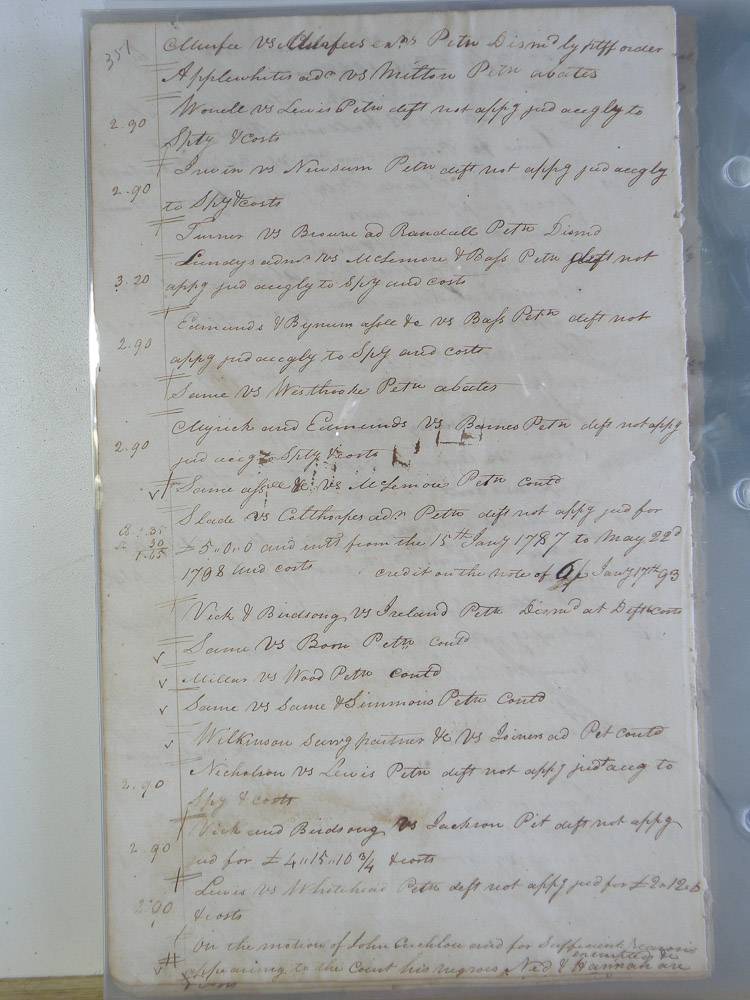 351
Murfee vs Murfees exrs Petn Dismd by ptff order
Applewhites adr vs Mitton Petn abates
2.90 Worrell vs Lewis Petn deft not appg jud accgly to
Spty & costs
2.90 Irwin vs Newsum Petn deft not appg jud accgly
to Spy & costs
Turner vs Browne ad Randall Petn Dismd
3.20 Lundys admr vs McLemore & Bass Petn deft not
appg jud accgly to Spy and costs
2.90 Edmunds & Bynum assee &c vs Bass Petn deft not
appg jud accgly to Spy and costs
Same vs Westbrooke Petn abates
2.90 Myrick and Edmunds vs Barnes Petn deft not appg
jud accg to Spty & costs
Same assee &c vs McLemore Petn Contd
Slade vs Calthorpes adr Petn deft not appg jud for
£5,,0,,0 and intt from the 15th Jany 1787 to May 22d
1.65 1798 and costs credit on the note of 6/ Jany 17th 93
Vick & Birdsong vs Ireland Petn Dismd at Defts Costs
Same vs Boon Petn contd
Millar vs Wood Petn contd
Same vs Same & Simmons Petn Contd
Wilkinson survg partner &c vs Joiners ad Pet contd
2.90 Nicholson vs Lewis Petn deft not appg judt accg to
Spy & costs
2.90 Vick and Birdsong vs Jackson Pet deft not appg
jud for £4,,15,,10 3/4 & costs
2.90 Lewis vs Whitehead Petn deft not appg jud for £2,,12,,6
& costs
On the motion of John and for Sufficient reasons
appearing to the Court his negroes Ned & Hannah are
exempted